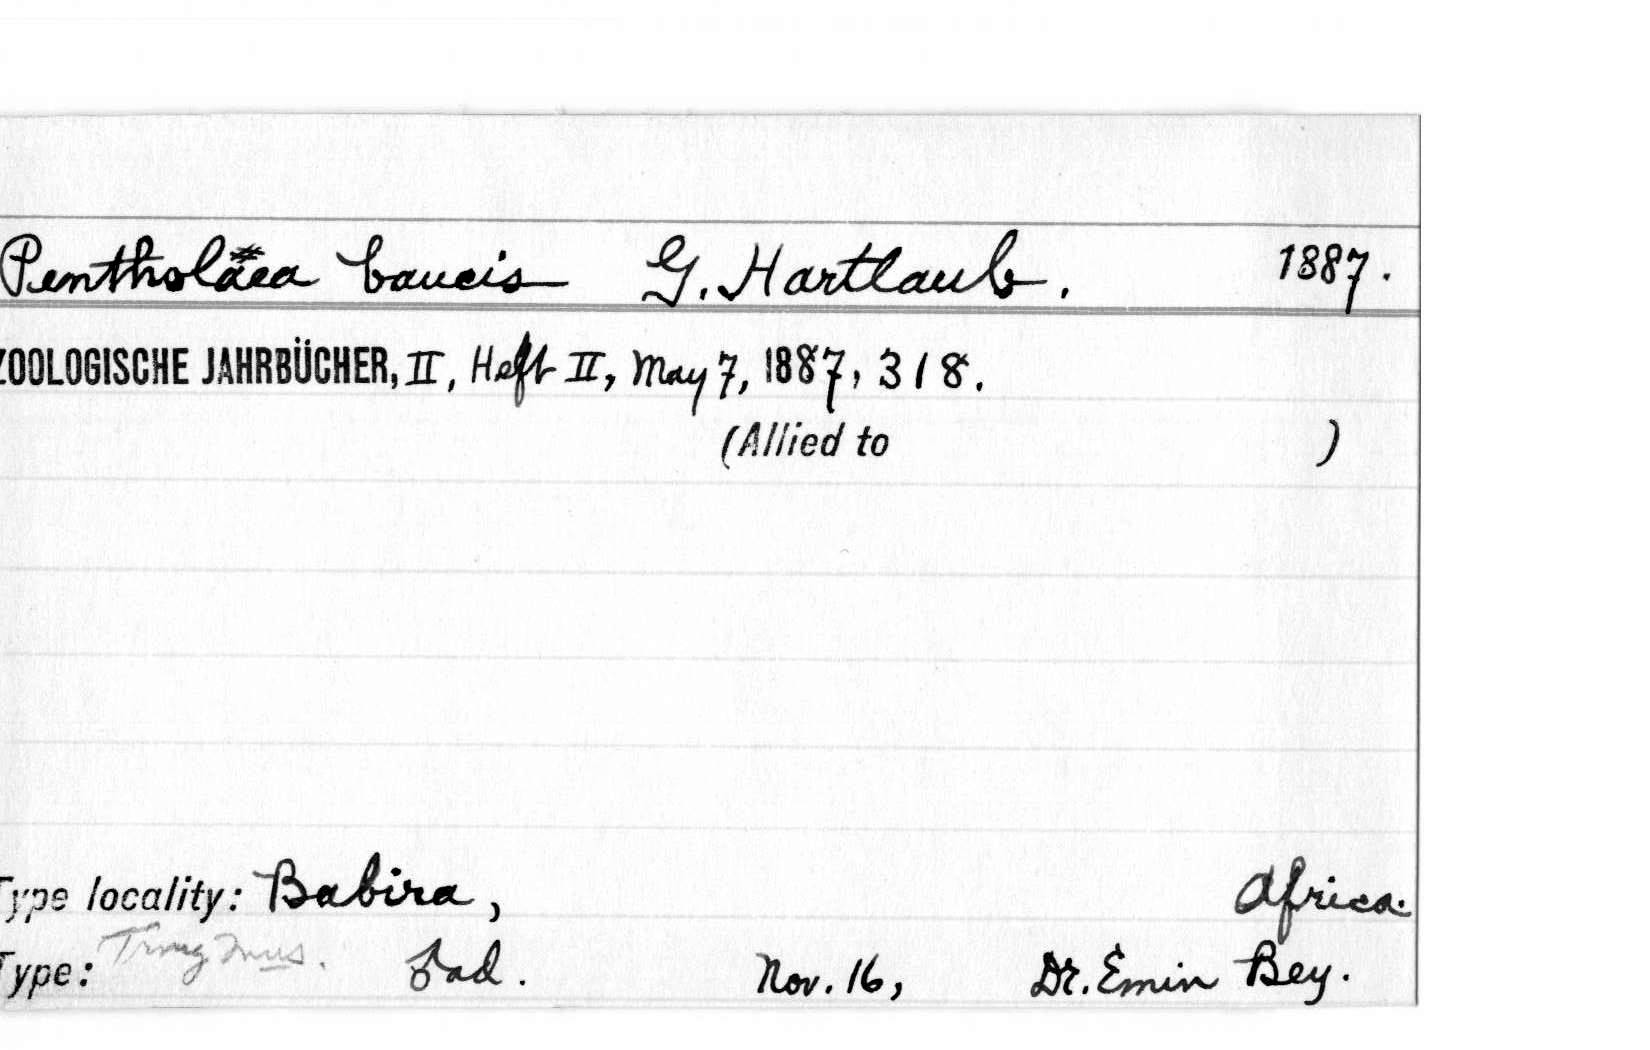 Pentholäea baucis G. Hartlaub. 1887.
ZOOLOGISCHE JAHRBÜCHER, II, Heft II, May 7, 1887, 318.
(Allied to )
Type locality: Babira, Africa.
Type: Tring Mus. ♀ ad. Nov. 16, Dr. Emin Bey.